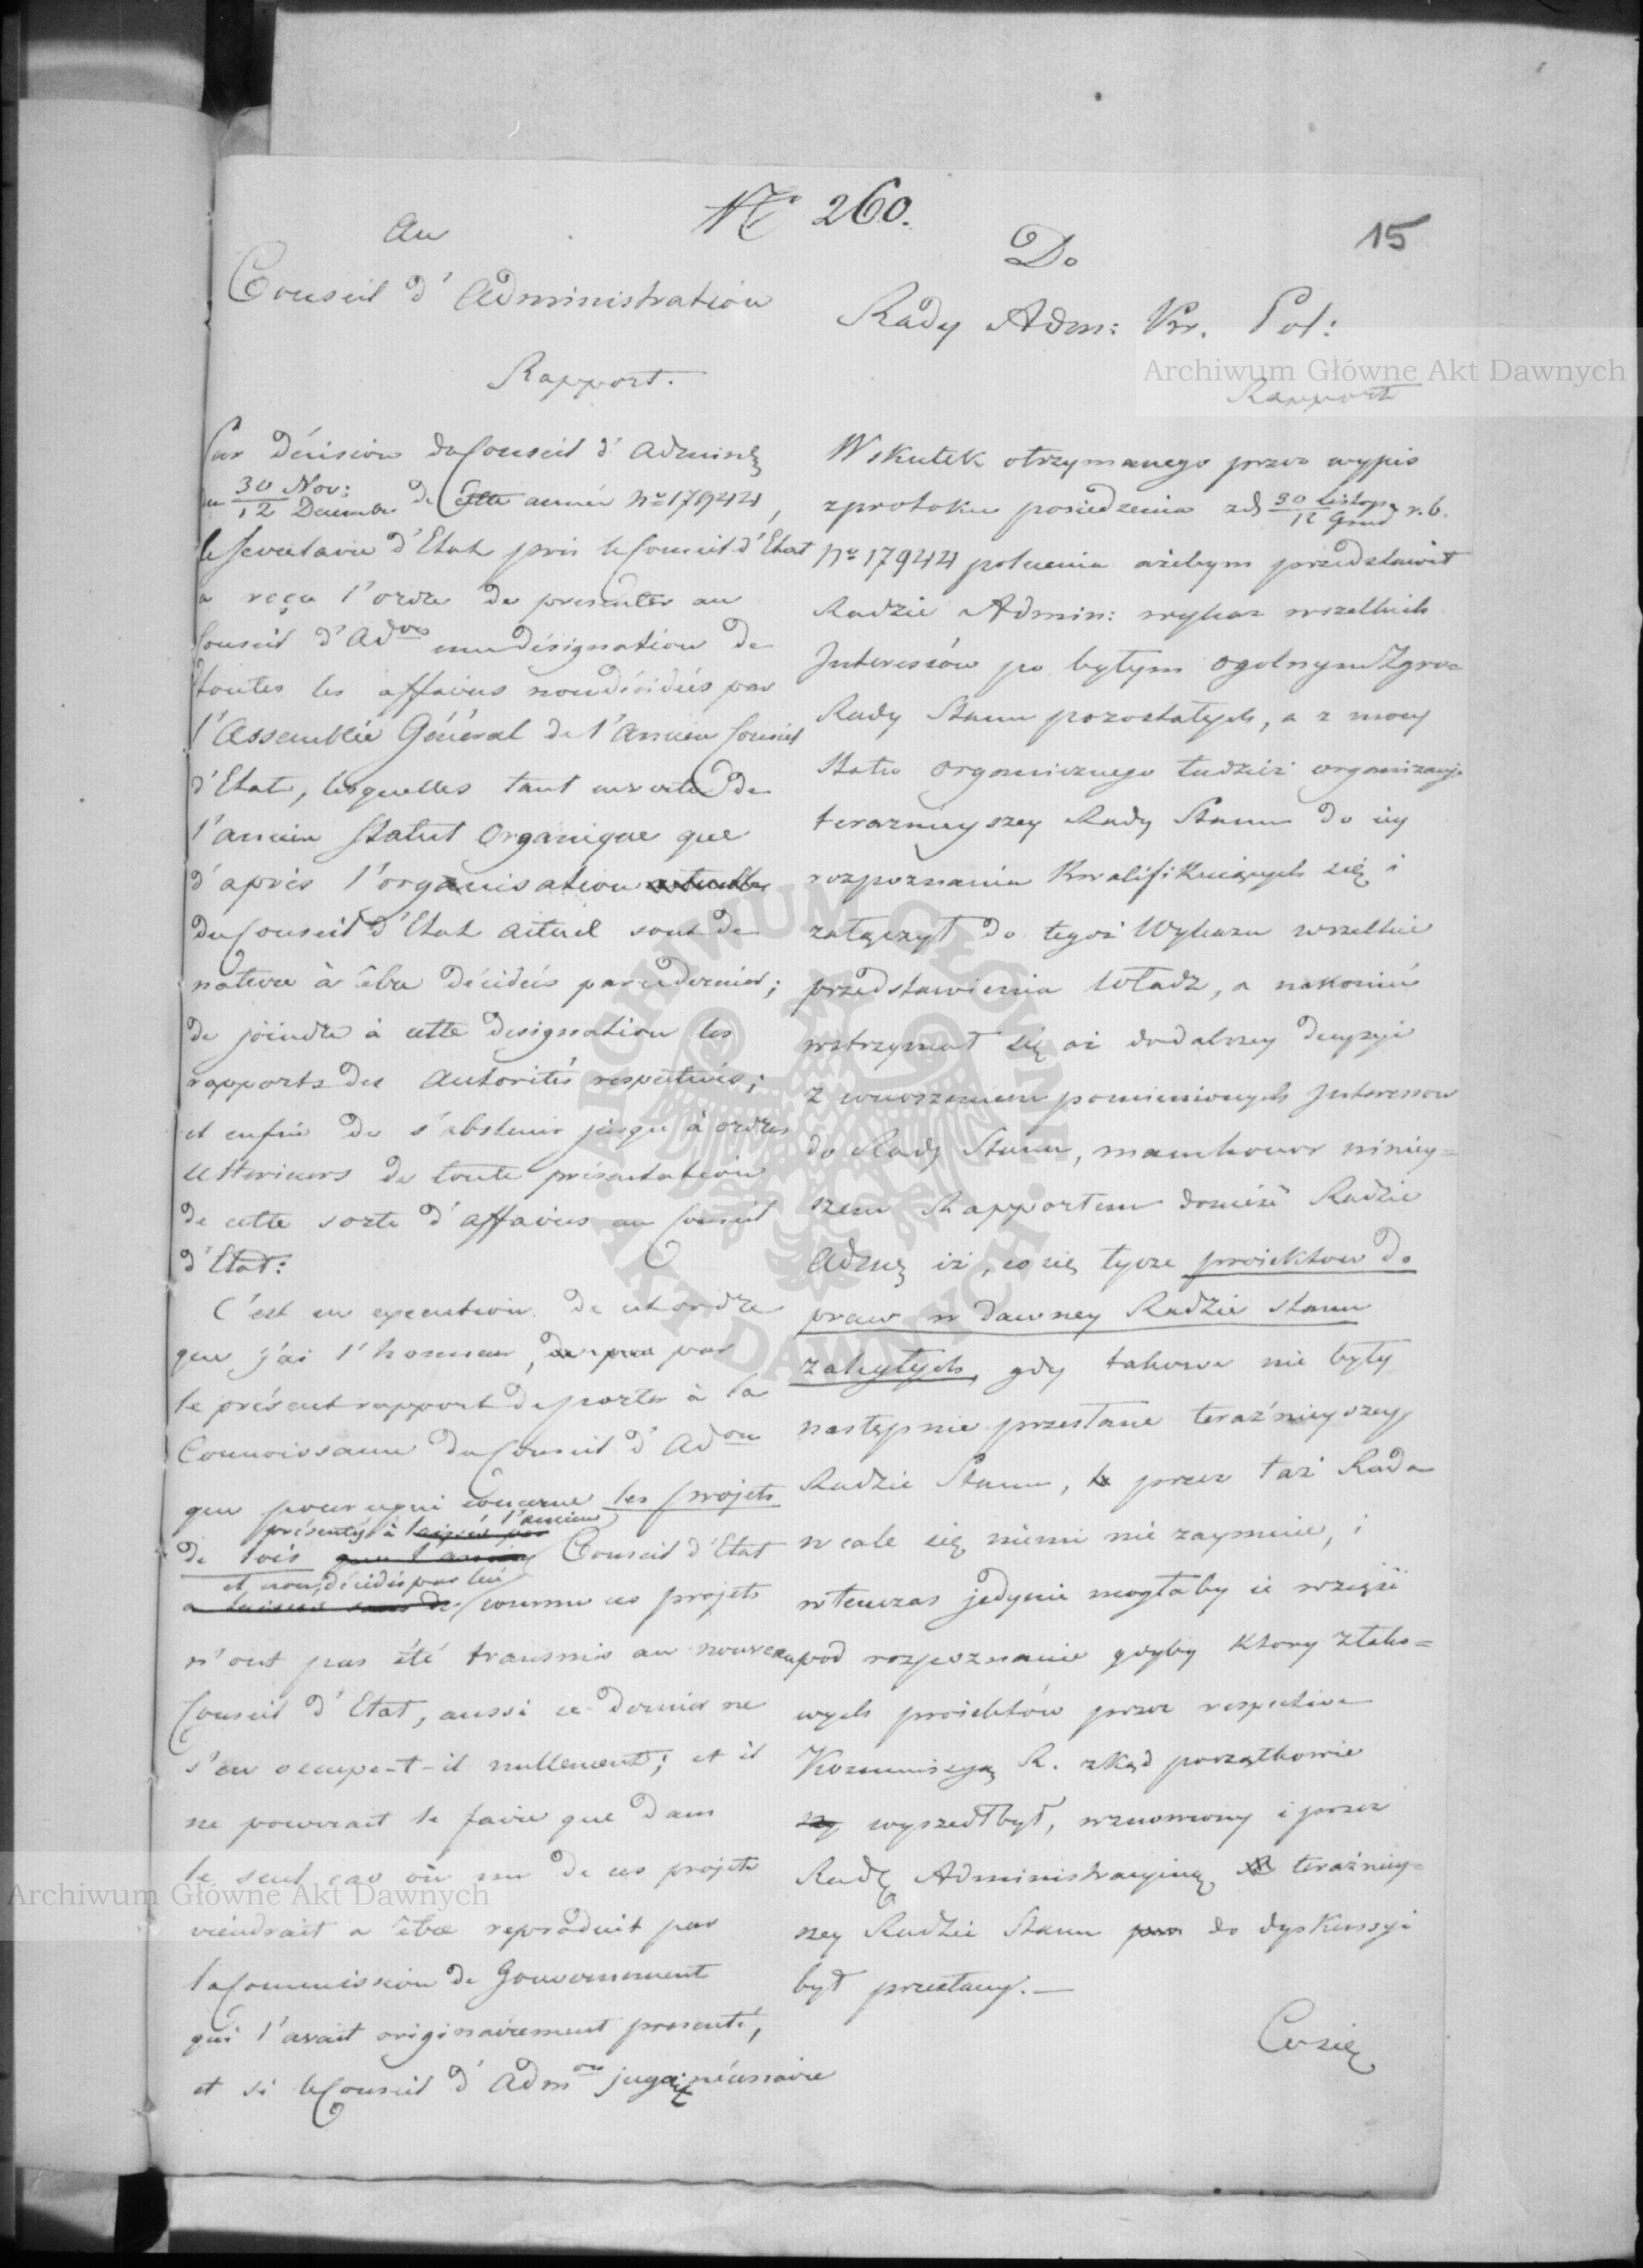 No 260.
15
Au
Conseil d'Administration
Rapport.
Par Décision du Conseil d'Admin
du 30 Nov: / 12 Decembre de cette année No 17944,
le Secretaire d'Etat près le Conseil d'Etat
a reçu l'ordre de presenter au
Conseil d'Adon une désignation de
toutes les affaires non décidées par
l'Assemblée Général de l'Ancien Conseil
d'Etat, lesquelles tant en vertu de
l'ancien Statut Organique que
d'après l'organisation actuelle
du Conseil d'Etat actuel sont de
nature à être décidées par ce dernier;
de joindre à cette designation les
rapports des Autorités respectives;
et enfin de s'abstenir jusqu'à ordres
ulterieurs de toute présentation
de cette sorte d'affaires au Conseil
d'Etat:
C'est en execution de cet ordre
que j'ai l'honneur, par
le présent rapport de porter à la
Connoissance du Conseil d'Adon
que pour ce qui concerne les projets
présentés à l'ancien
de lois Conseil d'Etat
et non décidés par lui
comme ces projets
n'ont pas été transmis au nouveau
Conseil d'Etat, aussi ce dernier ne
s'en occupe-t-il nullement; et il
ne pourrait le faire que dans
le seul cas où un de ces projets
viendrait a être reproduit par
la Commission de Gouvernement
qui l'avait originairement presenté,
et si le Conseil d'Admon jugait nécessaire
Do
Rady Adm: Kr. Pol:
Rapport
Wskutek otrzymanego przez wypis
z protoku posiedzenia z d. 30 Listop / 12 Grud r.b.
No 17944 polecenia ażebym przedstawił
Radzie Admin: wykaz wszelkich
Interessów po byłym ogolnym Zgro=
Rady Stanu pozostałych, a z mocy
Statu organicznego tudzież organizacyi
teraznieyszey Rady Stanu do iey
rozpoznania kwalifikuiących się i
załączył do tegoż Wykazu wszelkie
przedstawienia Władz, a nakoniec
wstrzymał się aż do dalszey decyzyi
z wnoszeniem pomienionych Interessow
do Rady Stanu, mam honor niniey=
szem Rapportem donieść Radzie
Adm iż, co się tycze proiektow do
praw w dawney Radzie Stanu
zaległych, gdy takowe nie były
następnie przesłane teraźnieyszey
Radzie Stanu, przez taż Rada
wcale się niemi nie zaymuie, i
wtenczas jedynie mogłaby ie wziąść
pod rozpoznanie gdyby ktory z tako=
wych proiektów przez respective
Kommissyą R. zkąd początkowie
wyszedł był, wznowiony i przez
Radę Administracyiną teraźniey=
szey Radzie Stanu do dyskussyi
był przesłany.—